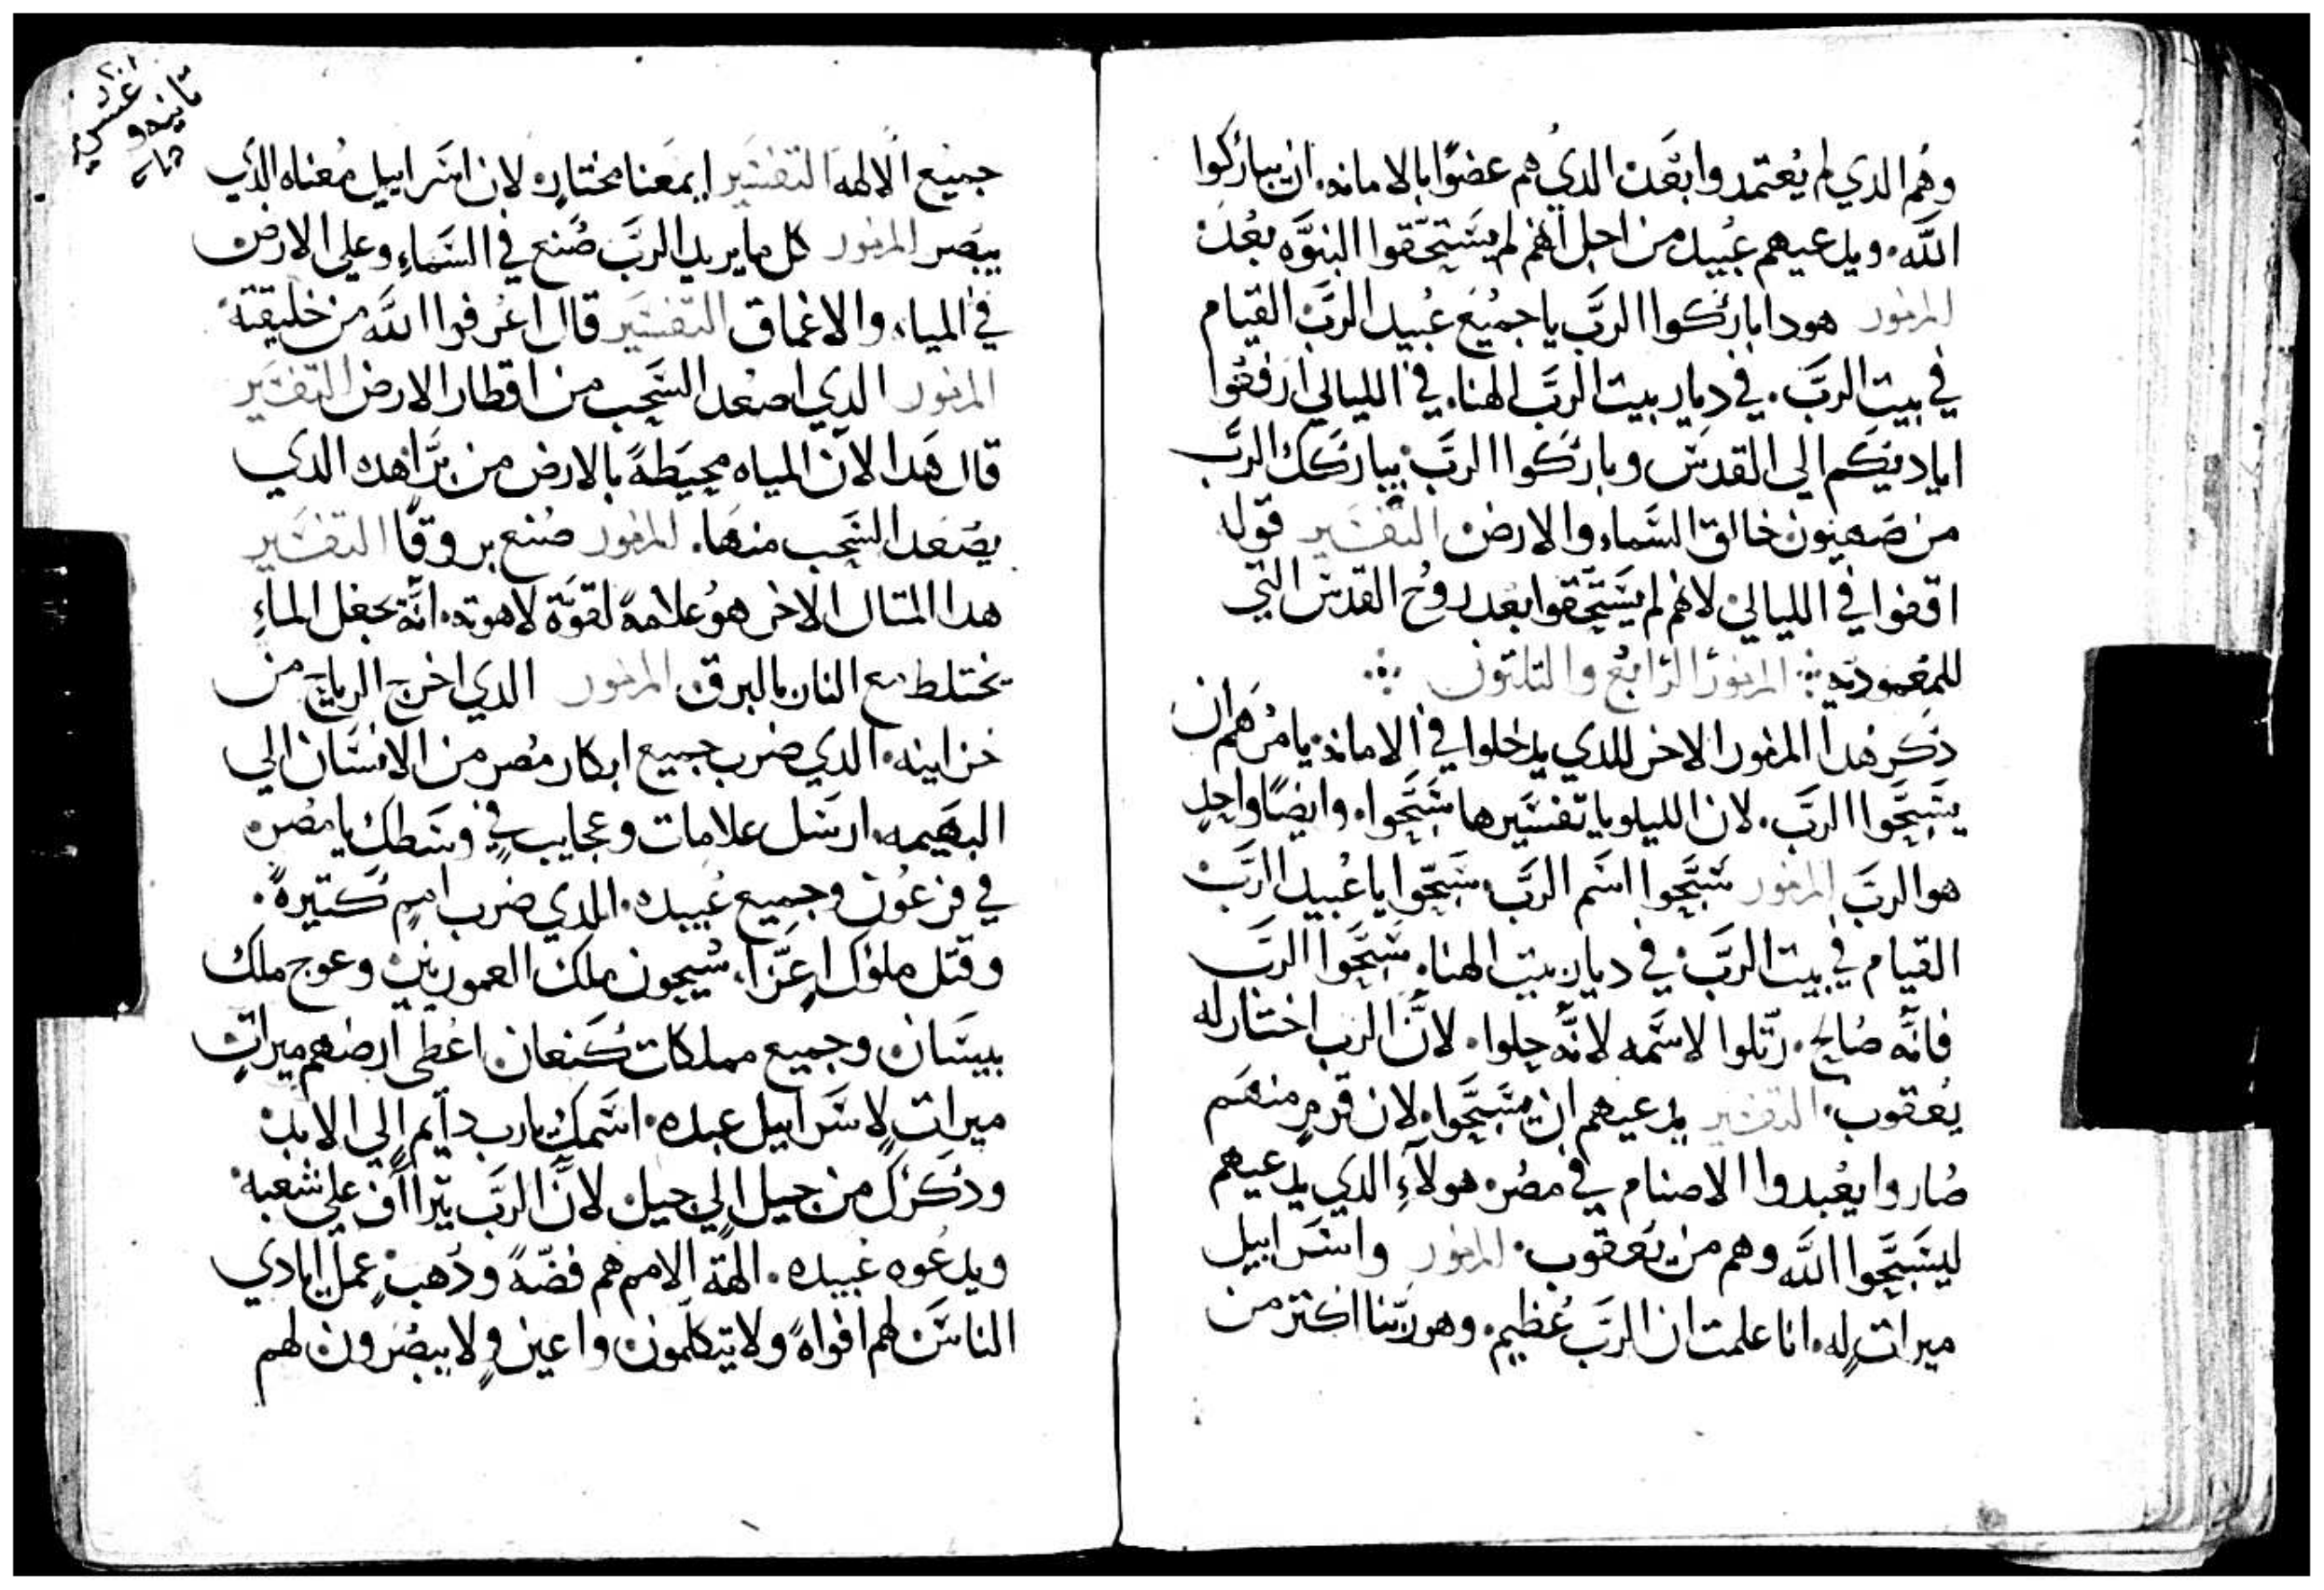 وهُم الدي لم يُعتمدوا بعَد الديُ هم عضوًا بالامانه. ان يباركوا
اللَّه. ويدعيهم عبُيد من اجل انهم لم يسَتحَّقوا البنوَّه بعُد
المزمور هودا باركوا الربَّ يا جميُع عبُيد الربَّ القيام
في بيت الربَّ. في ديار بيت الربَّ الهنا. في الليالي ارفعُوا
اياديكم الي القدسَ وباركوا الربَّ. يباركك الربَّ
من صَهيون خالق السَّماء والارض التفسَير قوله
اقفوا في الليالي لانهم لم يسَتحَّقوا بعد روُح القدسَ التي
للمعُموديه ⁘ المزمورُ الرابعُ والتلتون ⁘
ذكر هدا المزمور الاخر للدي يدخلوا في الامانه. يامرُهم ان
يسَبحَّوا الربَّ. لان الليلويا تفسَيرها سَبحَّوا. وايضًا واحدٍ
هو الربَّ المزمور سَبَّحوا اسَم الربَّ سَبحَّوا يا عُبيد الربَّ
القيام في بيت الربَّ في ديار بيت الهنا. سَبحَّوا الربَّ
فانَّه صُالح. رتَّلوا لاسَمه لانَّه حلوا. لانَّ الرب اختار له
يُعقوب. التفسَير يدعيهم ان يسَبَّحوا. لان قومٍ منهَم
صُاروا يعُبدوا الاصنام في مصُر. هولآءِ الدي يدعيهم
ليسَبحَّوا اللَّه وهم من يُعقوب. المزمور واسَراييل
ميراتٍ له. انا علمت ان الربَّ عُظيم. وهو ربَّنا اكتر من
جميع الالهه التفسَير ايمعَنا مختاره لان اسَراييل معُناه الدَي
يبصَر المزمور كل ما يريد الربَّ صُنع في السَماءِ وعلي الارض
في المياه والاعماق التفسَير قال اعُرفوا اللَّه من خليقته
المزمور الدي اصعُد السَحب من اقطار الارض التفسَير
قال هَدا لان المياه محيَطةً بالارض من برَّا هده الدي
يصُعَد السَحب منهَا. المزمور صُنع بروقًا التفسَير
هدا المتال الاخر هوُ علامةً لقوَّة لاهوته. انَّه يجعَل الماءِ
يختلط مع النار بالبرق المزمور الدي اخرج الرياح من
خزاينه. الدي ضرب جميع ابكار مُصر من الانسَان الي
البهَيمه. ارسَل علامات وعجايب في وسَطك يا مصُر.
في فرعُون وجميع عُبيده. الدي ضرب اممٍ كتَيرةً.
وقتل ملوُك اعِزَّا. سُيحون ملك العموريين وعوج ملك
بيسَان وجميع مملكات كَنعان اعُطي ارضهم ميراتٍ
ميراتٍ لاسَراييل عبده. اسَمك يا رب دآيمٍ الي الابد
ودُكرَك من جيل الي جيل لانَّ الربَّ يتراآف علي شعبه
ويدعُوه عُبيده. الهة الامم هم فضَّةً ودُهبٍ عمل ايادي
الناسَ لهم افواهً ولا يتكلَّمون واعينٍ ولا يبصُرون لهم